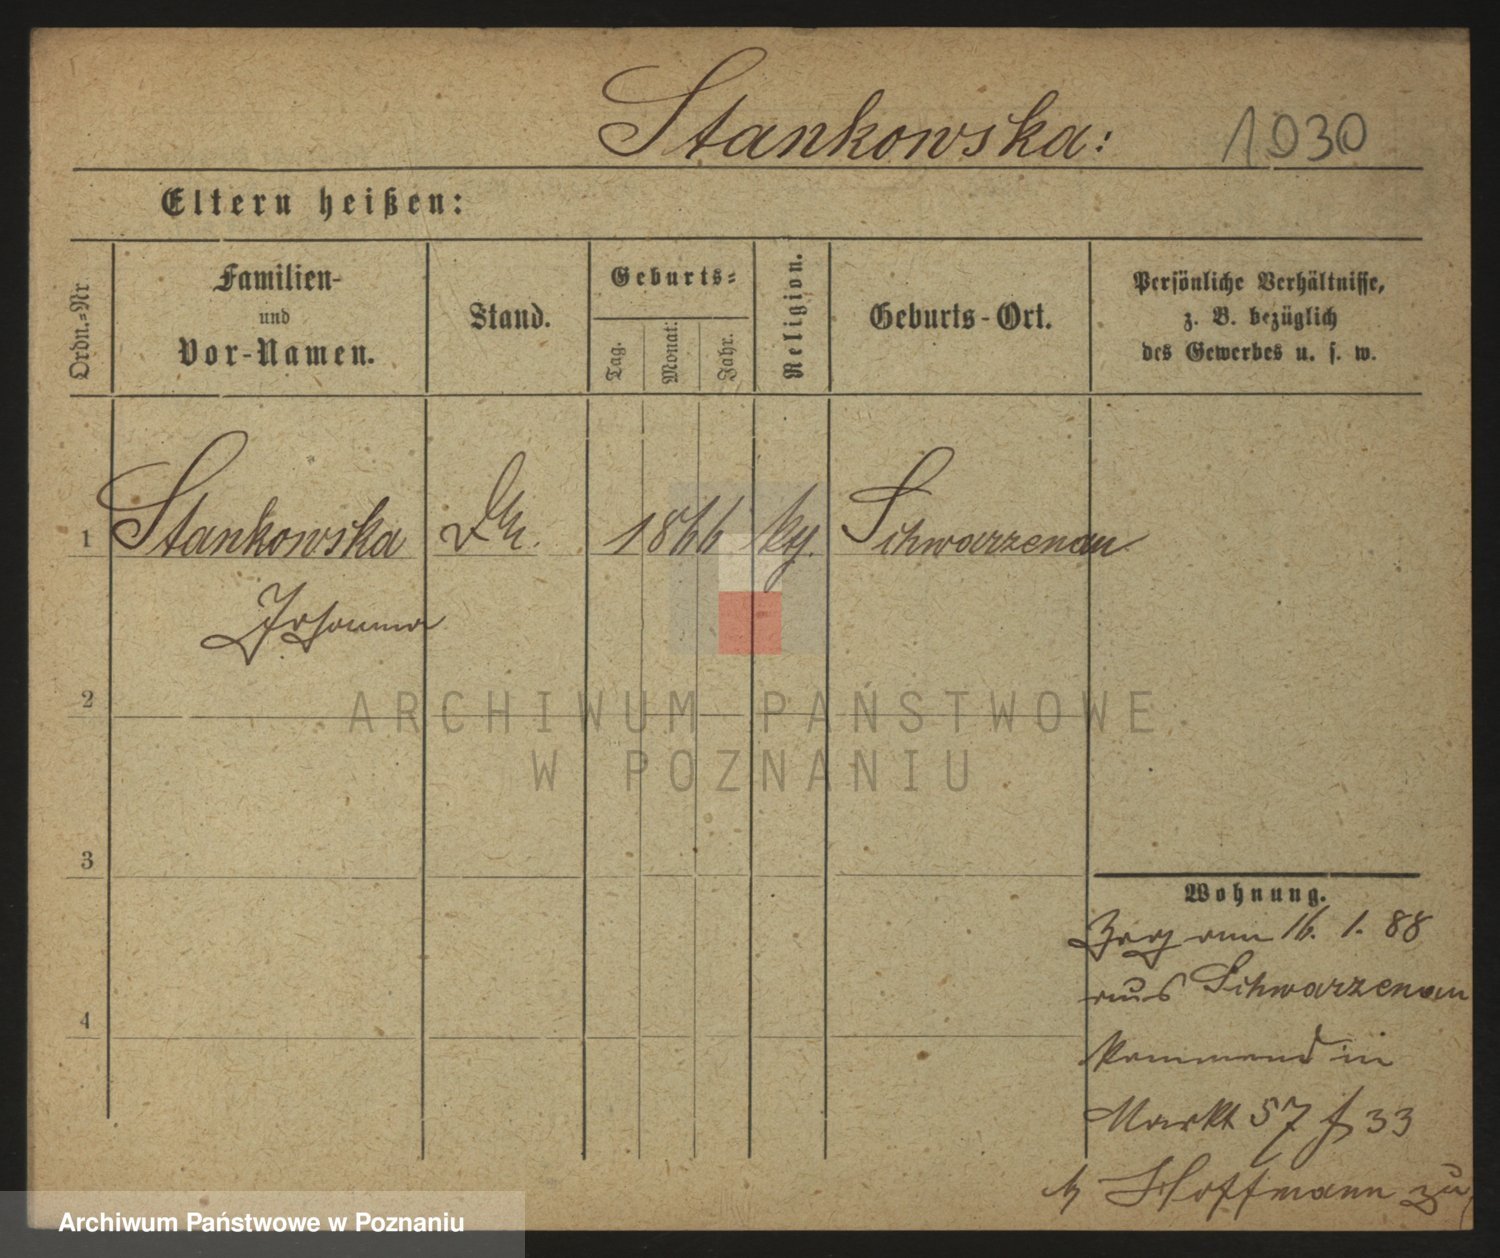 Stankowska:
1030
Eltern heißen:
Ordn.-Nr
Familien-
und
Vor-Namen.
Stand.
Geburts-
Tag.
Monat.
Jahr.
Religion.
Geburts-Ort.
Persönliche Verhältnisse,
z. B. bezüglich
des Gewerbes u. s. w.
1
Stankowska
1866
Schwarzenau
Johanna
2
ARCHIWUM PAŃSTWOWE
W POZNANIU
3
Wohnung.
Zug am 16. 1. 88
aus Schwarzenau
4
kommend in
Markt 57 33
Hoffmann zu
Archiwum Państwowe w Poznaniu